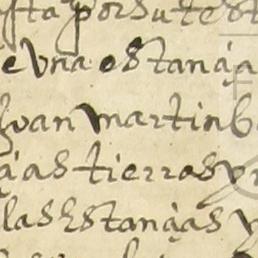 sta por su test
e Vna estançia
Joan martin b
ças tierras y
las Estançias y